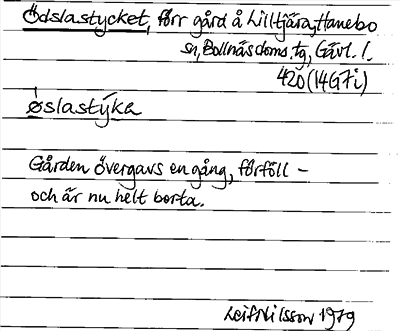 Ödslastycket, förr gård å Lilltjära, Hanebo
sn, Bollnäs doms. tg, Gävl. l.
420 (14G7i)
øslastýka
Gården övergavs en gång, förföll –
och är nu helt borta.
Leif Nilsson 1979